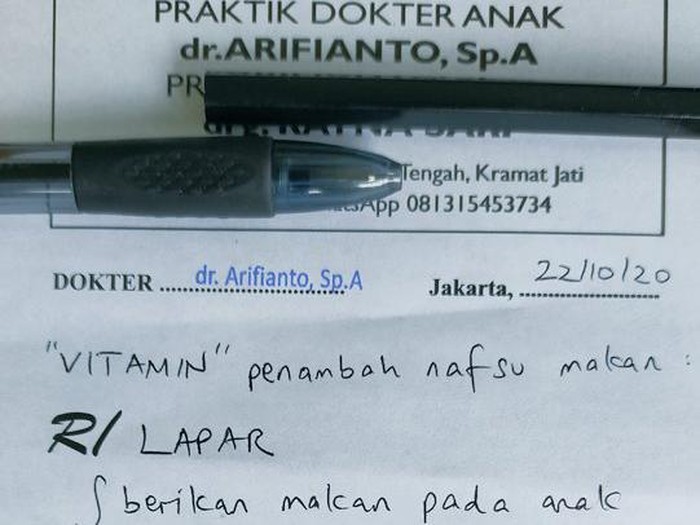 PRAKTIK DOKTER ANAK
dr.ARIFIANTO, Sp.A
Tengah, Kramat Jati
081315453734
DOKTER .................... dr. Arifianto, Sp.A
Jakarta, .................... 22/10/20
"VITAMIN" penambah nafsu makan :
R/ LAPAR
∫ berikan makan pada anak